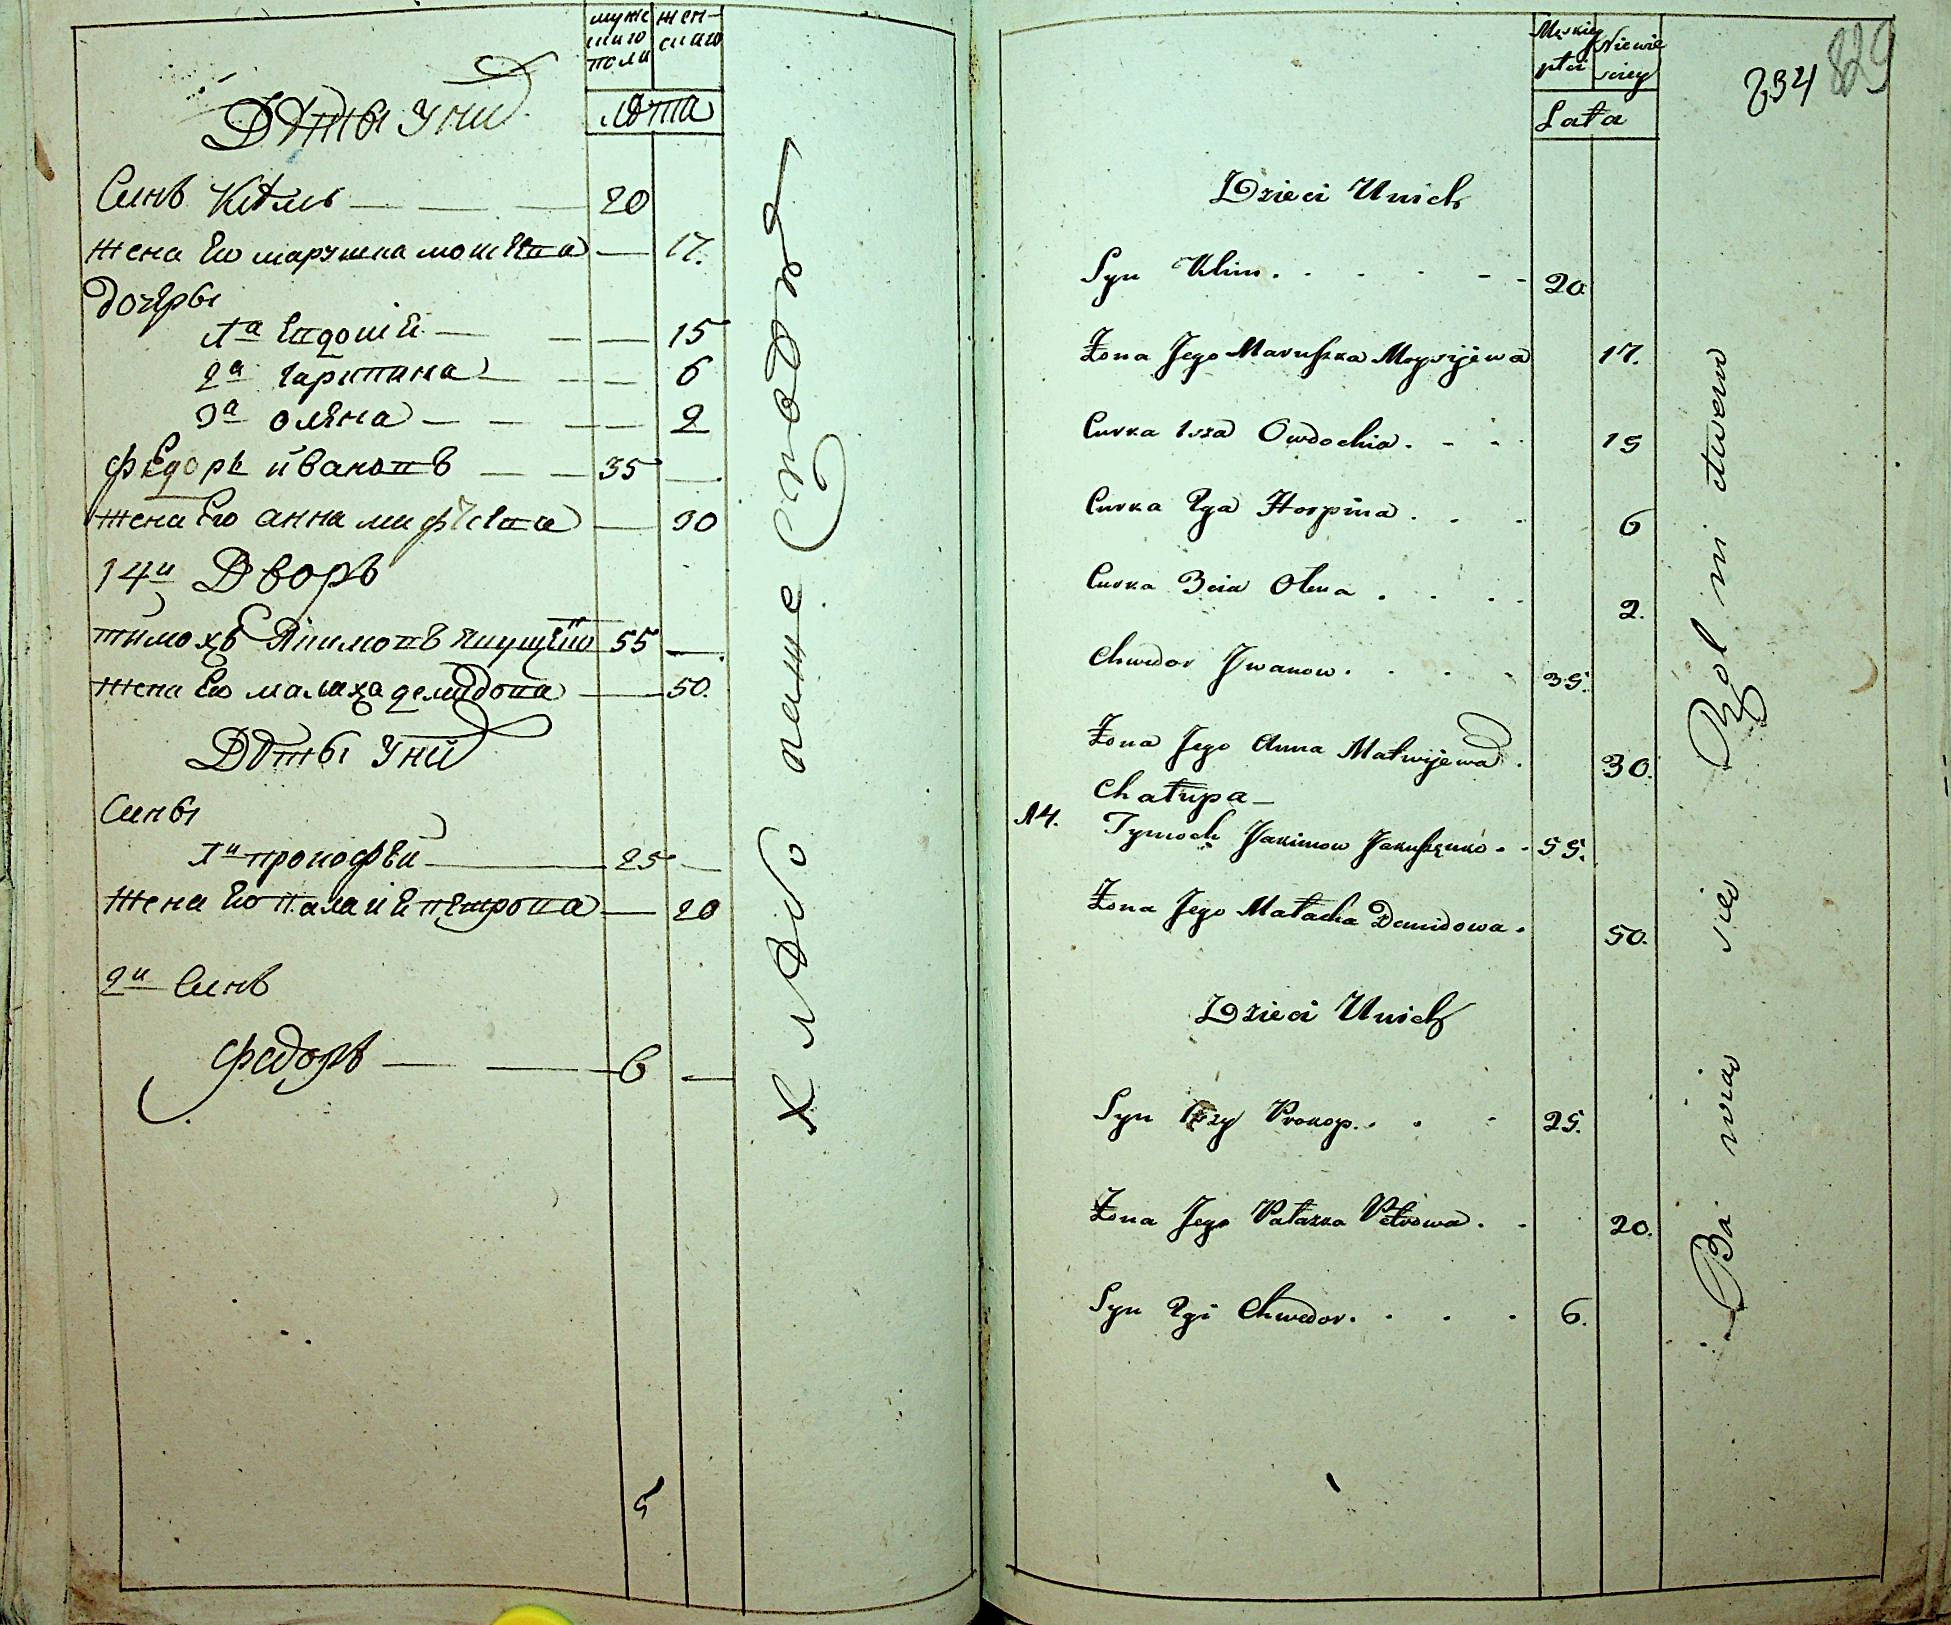 мужескаго пола
женскаго
Лѣта
Дѣти У ний
Синъ Кѣлмъ 20
жена Его марушка моисѣева 17.
дочери
1а Евдокиѣ 15
2а гарпина 6
3а олѣна 2
федоръ ивановъ 35
жена Его анна матфѣева 30
14й Дворъ
тимохъ Якимовъ 55
жена Его малаха демидова 50.
Дѣти У ний
Сини
1й прокофѣй 25
жена Его палаиѣ петрова 20
2й Синъ
федоръ 6
Хлѣбо пашествомъ
5
Męskiey płci
Niewieściey
Lata
234
829
Dzieci Unich
Syn Klim 20
Żona Jego Maruszka Moysijewa 17.
Curka 1sza Owdochia 15
Curka 2ga Horpina 6
Curka 3cia Olena 2.
Chwedor Jwanow 35.
Żona Jego Anna Matwijewa 30.
Chałupa
14. Tymoch Jakimow Jakuszenko 55.
Żona Jego Małacha Demidowa 50.
Dzieci Unich
Syn 1szy Prokop 25.
Żona Jego Pałaszka Petrowa 20.
Syn 2gi Chwedor 6.
Bawią się Rolnictwem